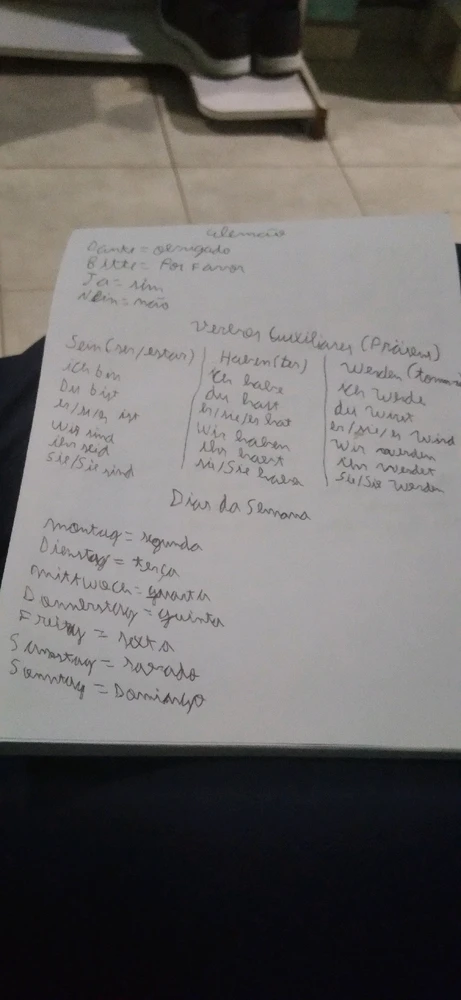 Alemão
Danke = obrigado
Bitte = Por Favor
Ja = sim
Nein = não
Verbos Auxiliares (Präsens)
Sein (ser/estar) | Haben (ter) | Werden
ich bin | ich habe | ich werde
Du bist | du hast | du wirst
er/sie/es ist | er/sie/es hat | er/sie/es wird
Wir sind | Wir haben | Wir werden
ihr seid | Ihr habt | Ihr werdet
Sie/Sie sind | sie/Sie habe | Sie/Sie werden
Dias da Semana
Montag = segunda
Dienstag = terça
Mittwoch = quarta
Donnerstag = quinta
Freitag = sexta
Samstag = sabado
Sonntag = Domingo